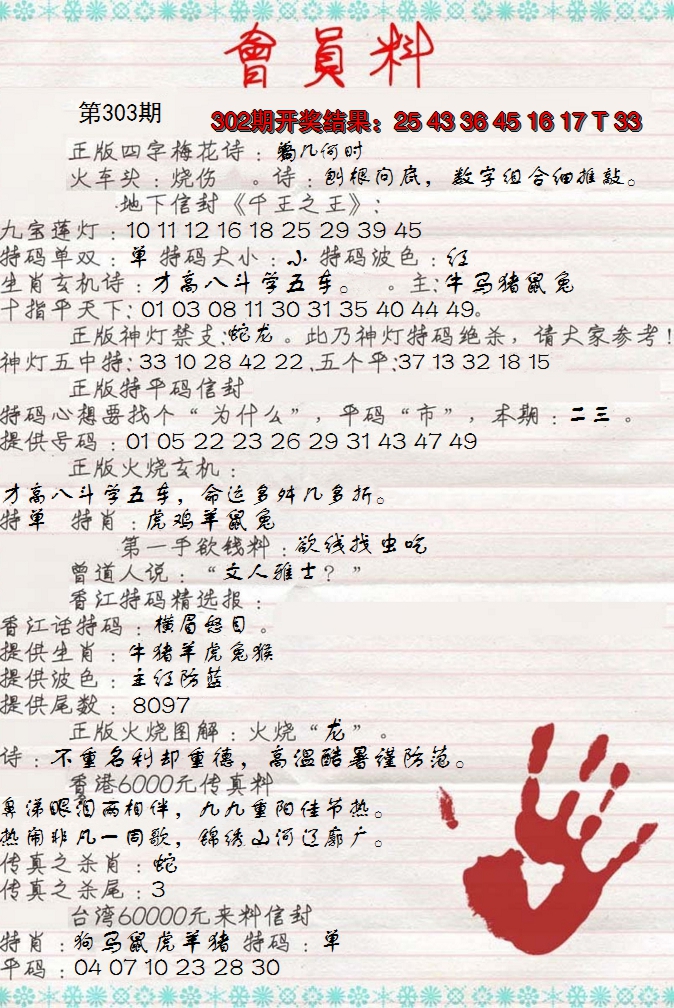 會員料
第303期
302期开奖结果：25 43 36 45 16 17 T 33
正版四字梅花诗：几何时
火车头：烧伤 。诗：刨根问底，数字组合细推敲。
地下信封《千王之王》：
九宝莲灯：10 11 12 16 18 25 29 39 45
特码单双：单 特码大小：小 特码波色：红
生肖玄机诗：才高八斗学五车。 。主：牛马猪鼠兔
十指平天下：01 03 08 11 30 31 35 40 44 49。
正版神灯禁支：蛇龙。此乃神灯特码绝杀，请大家参考！
神灯五中特：33 10 28 42 22 .五个平：37 13 32 18 15
正版特平码信封
特码心想要找个“为什么”，平码“市”，本期：二三 。
提供号码：01 05 22 23 26 29 31 43 47 49
正版火烧玄机：
才高八斗学五车，命运多舛几多折。
特单 特肖：虎鸡羊鼠兔
第一手欲钱料：欲钱找虫吃
曾道人说：“文人雅士？”
香江特码精选报：
香江话特码：横眉怒目。
提供生肖：牛猪羊虎兔猴
提供波色：主红防蓝
提供尾数：8097
正版火烧图解：火烧“龙”。
诗：不重名利却重德，高温酷暑谨防范。
香港6000元传真料
鼻涕眼泪两相伴，九九重阳佳节热。
热闹非凡一同歌，锦绣山河辽廓广。
传真之杀肖：蛇
传真之杀尾：3
台湾60000元来料信封
特肖：狗马鼠虎羊猪 特码：单
平码：04 07 10 23 28 30